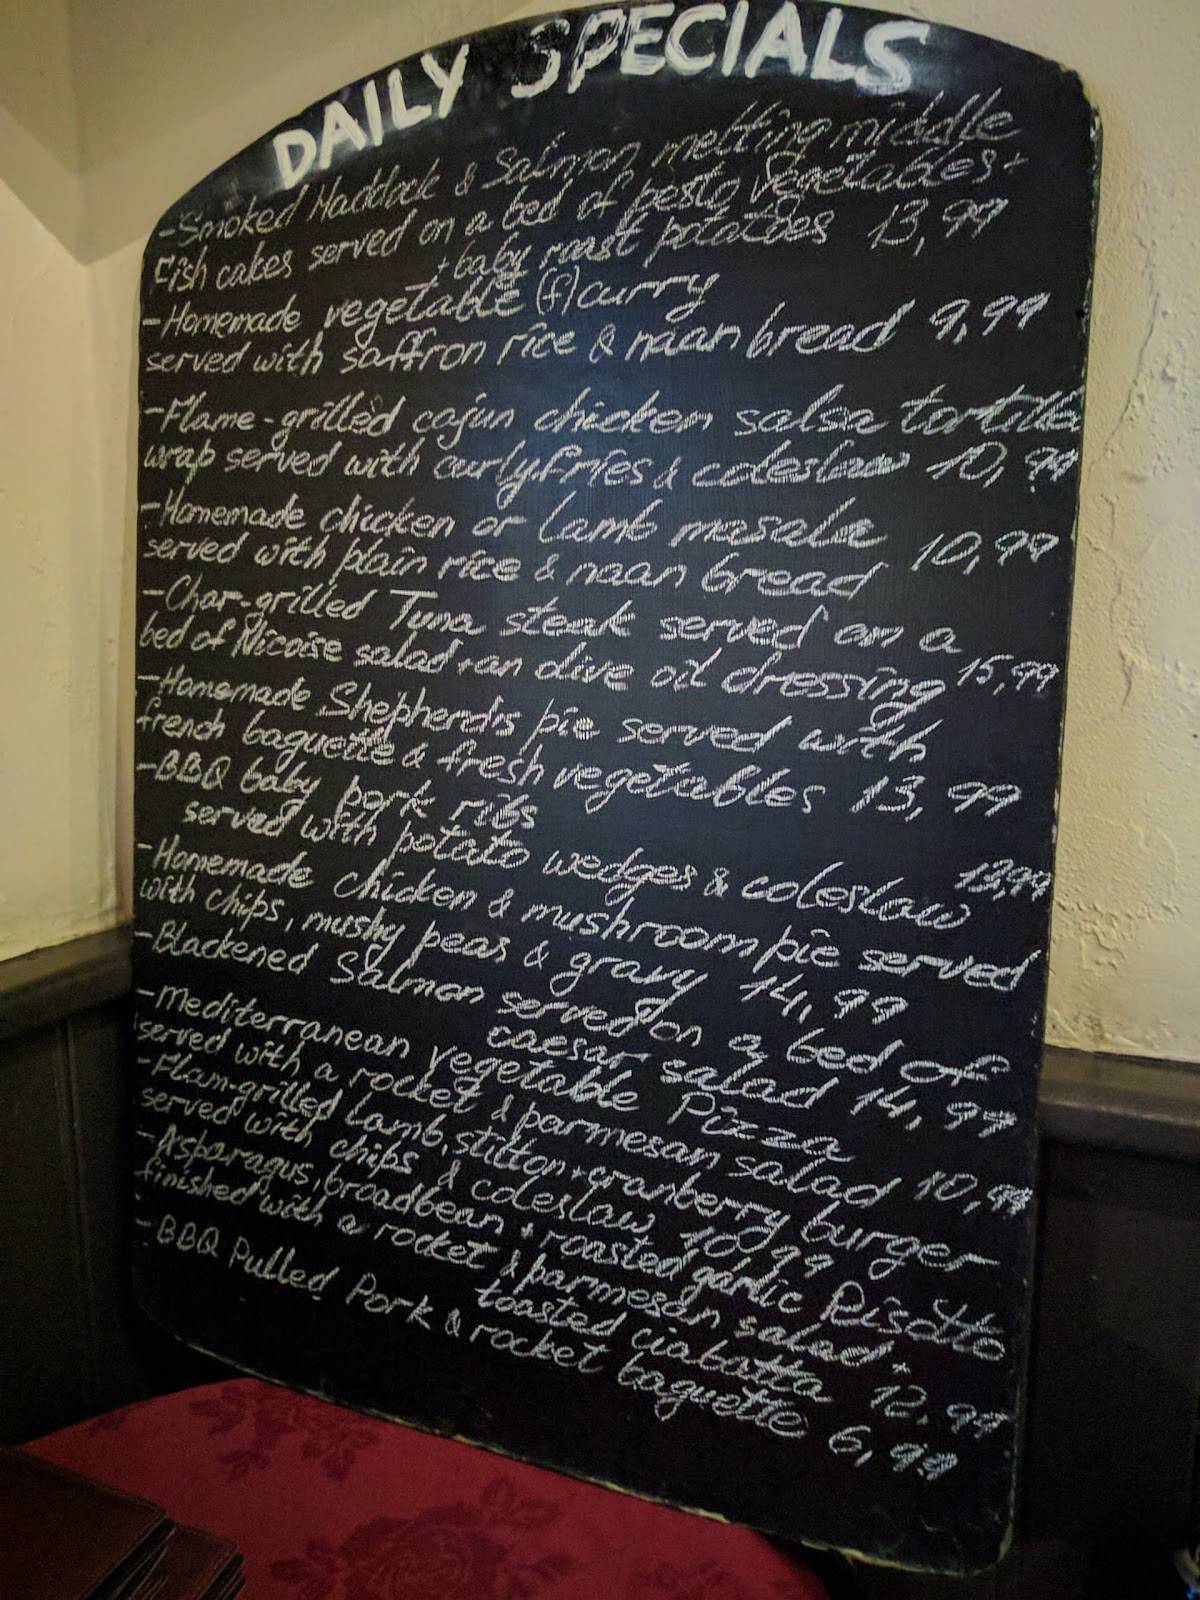 DAILY SPECIALS
-Smoked Haddock & Salmon melting middle
Fish cakes served on a bed of pesto vegetables +
+ baby roast potatoes 13,99
-Homemade vegetable (f) curry
served with saffron rice & naan bread 9,99
-Flame-grilled cajun chicken salsa tortilla
wrap served with curly fries & coleslaw 10,99
-Homemade chicken or lamb masala
served with plain rice & naan bread 10,99
-Char-grilled Tuna steak served on a
bed of Nicoise salad + an olive oil dressing 15,99
-Homemade Shepherd's pie served with
french baguette & fresh vegetables 13,99
-BBQ baby pork ribs
served with potato wedges & coleslaw 13,99
-Homemade chicken & mushroom pie served
with chips, mushy peas & gravy 14,99
-Blackened Salmon served on a bed of
caesar salad 14,99
-Mediterranean vegetable Pizza
served with a rocket & parmesan salad 10,99
-Flam-grilled lamb, stilton + cranberry burger
served with chips & coleslaw 10,99
-Asparagus, broadbean + roasted garlic Risotto
finished with a rocket & parmesan salad +
toasted ciabatta 12,99
-BBQ Pulled Pork & rocket baguette 6,99